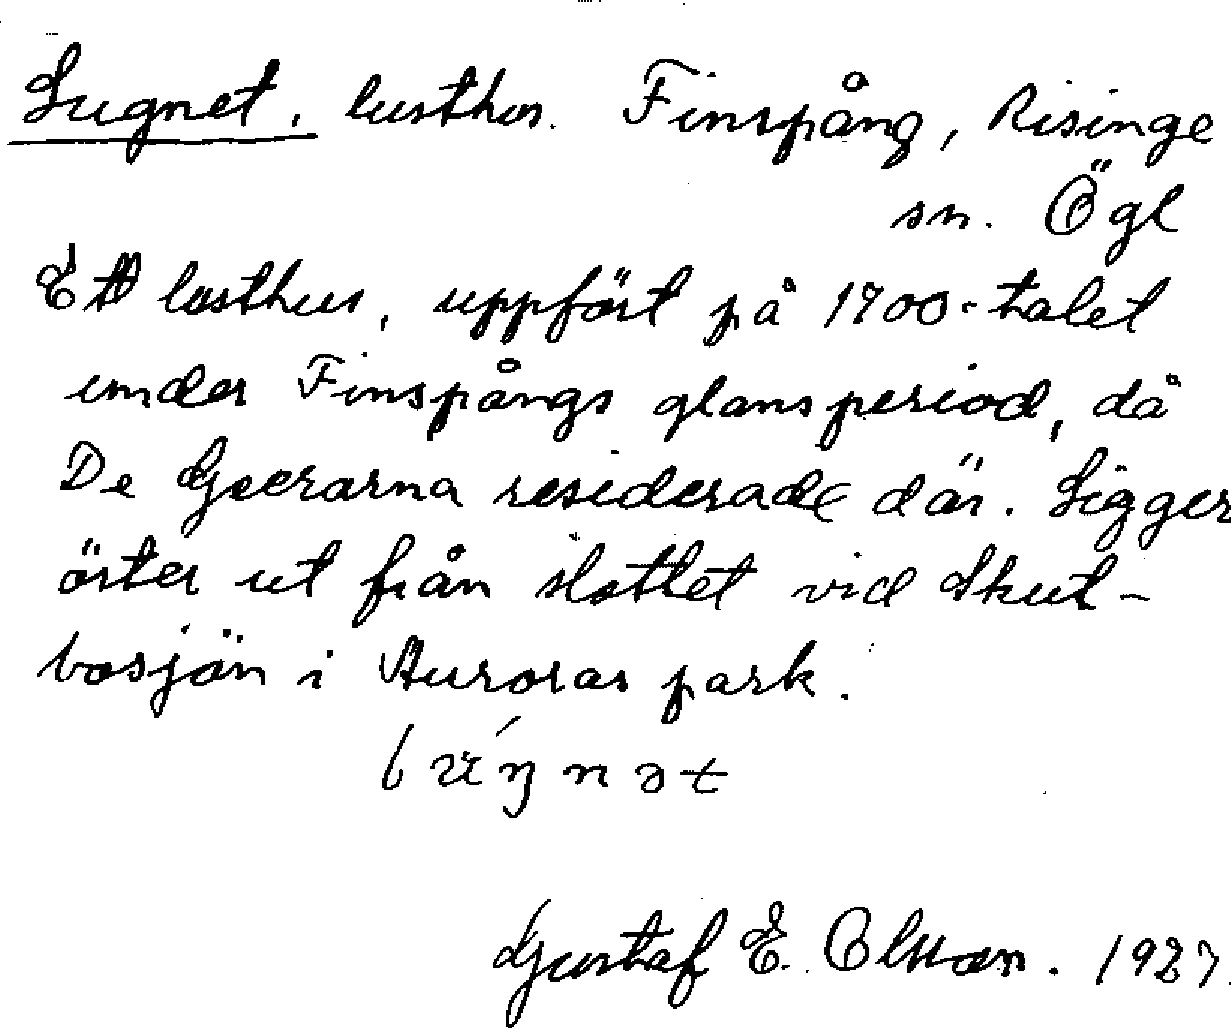 Lugnet, lusthus. Finspång, Risinge
sn. Ögl
Ett lusthus, uppfört på 1700-talet
under Finspångs glansperiod, då
De Geerarna residerade där. Ligger
öster ut från slottet vid Skut-
bosjön i Auroras park.
Gustaf E. Olsson. 1927.